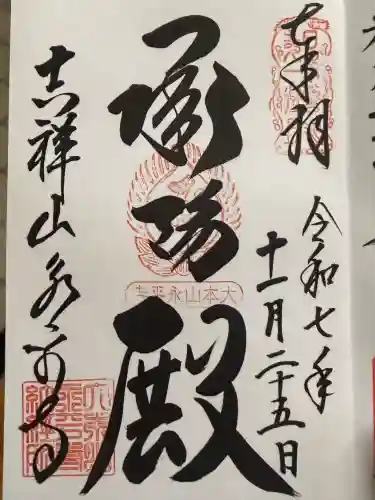 奉拝
令和七年
十一月二十五日
承陽殿
大本山永平寺
吉祥山永平寺